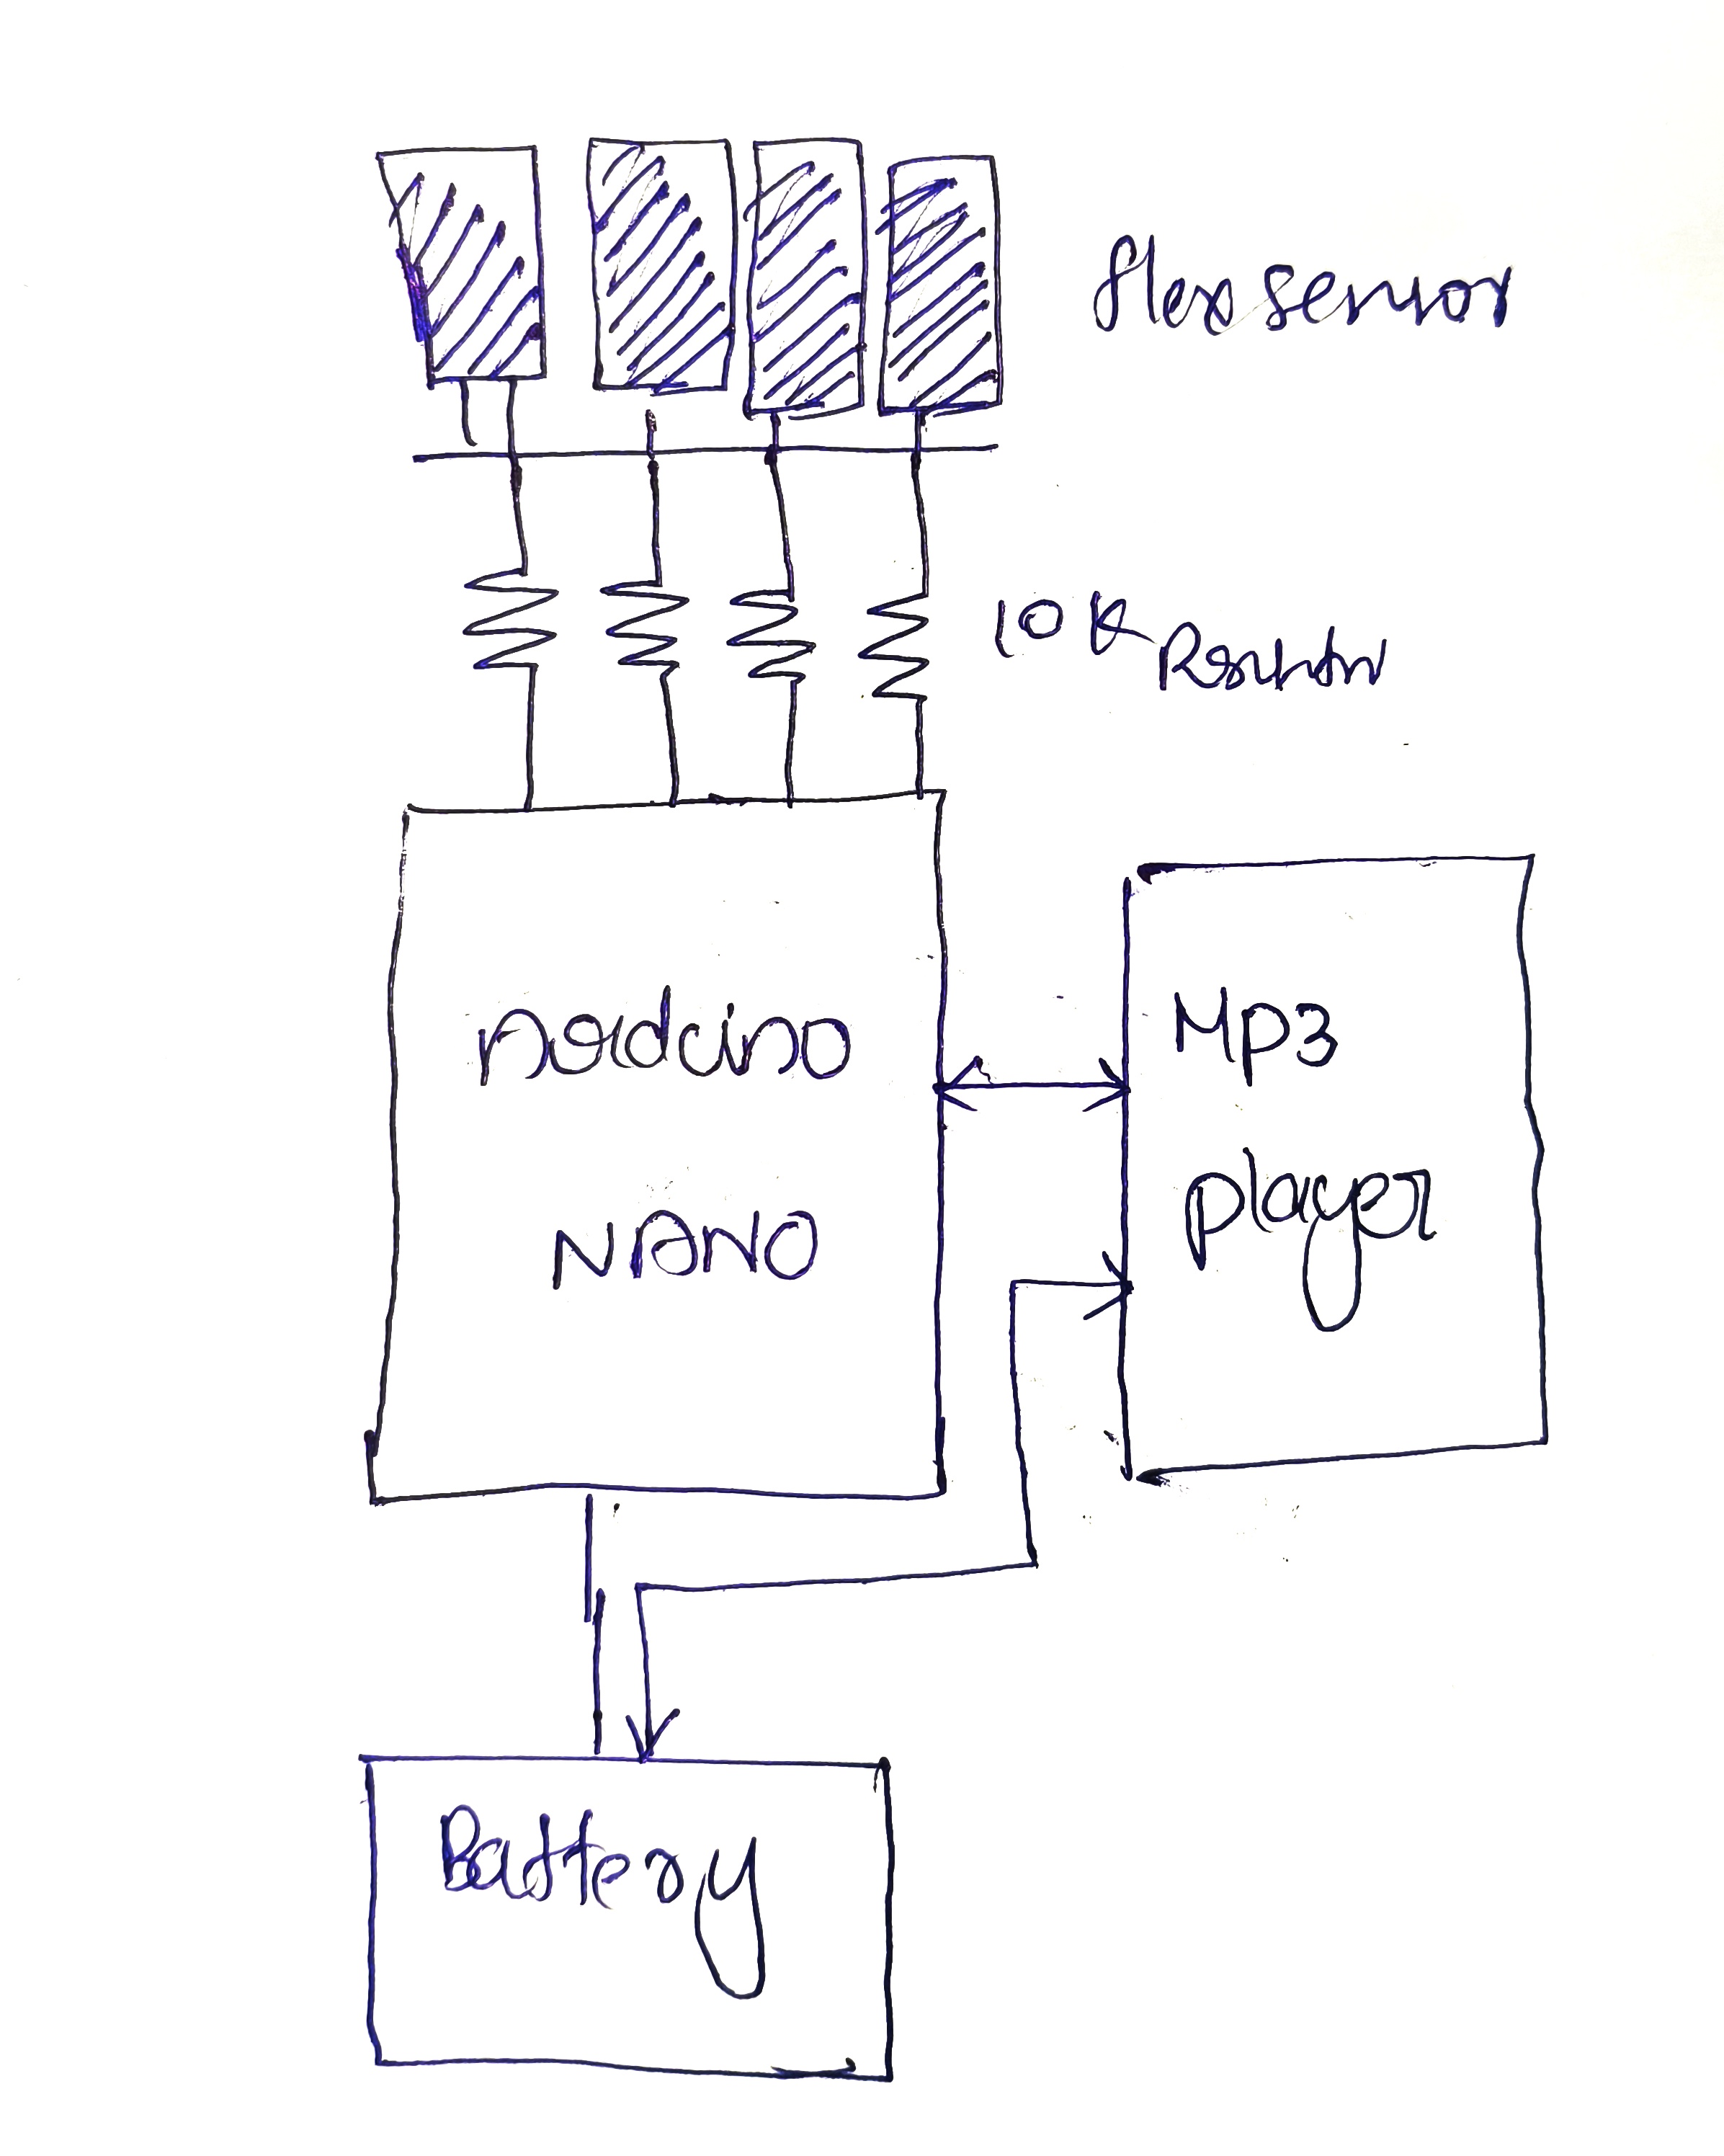 flex sensor
10K
Resistor
Arduino
NANO
Mp3
player
Battery